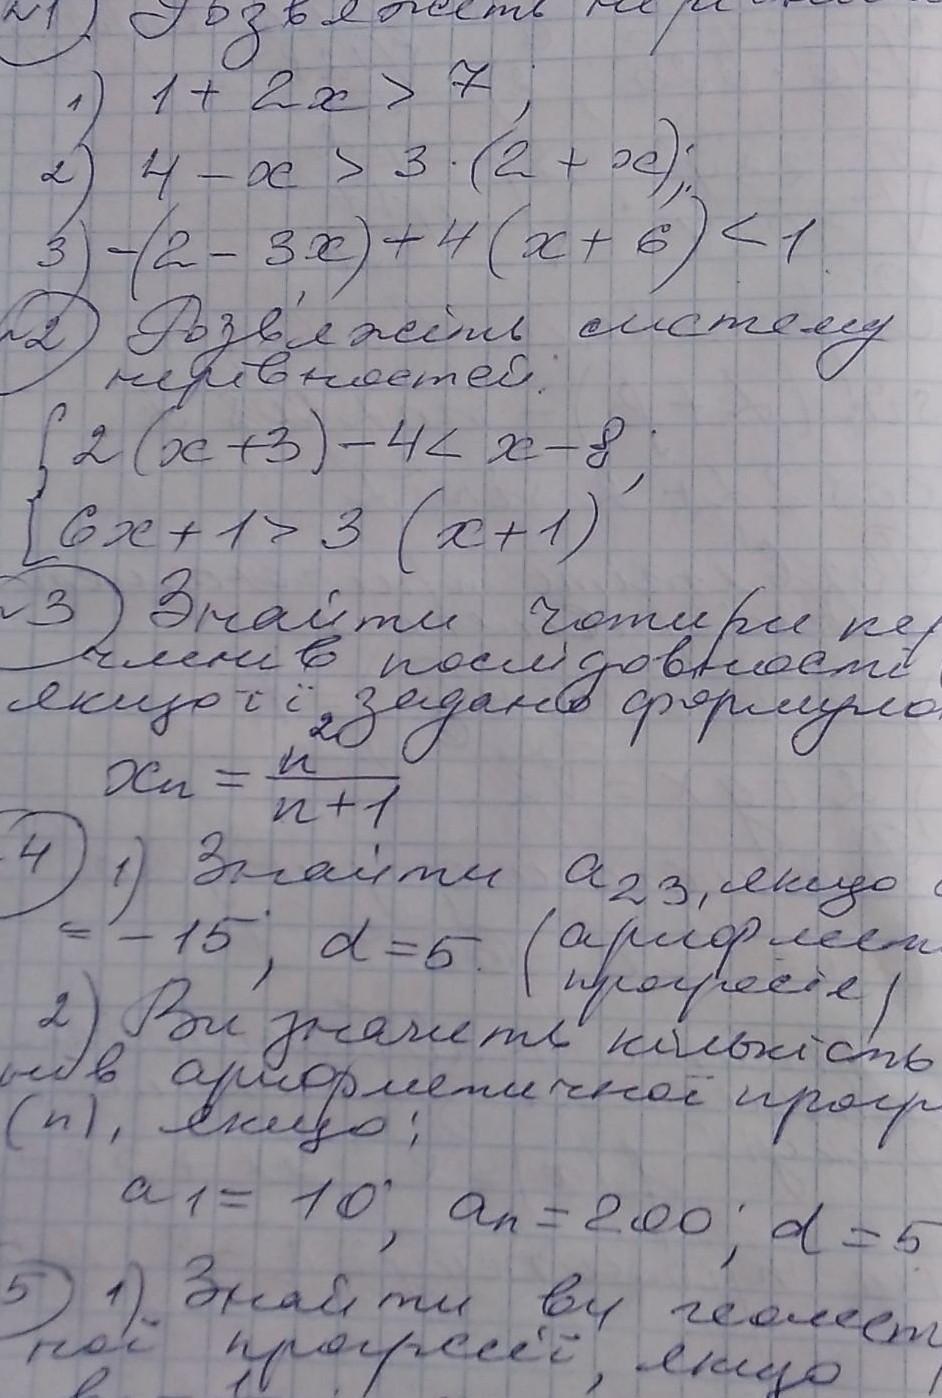 №1) Розв'яжіть
1) 1 + 2x > 7;
2) 4 - x > 3 · (2 + x);
3) -(2 - 3x) + 4(x + 6) < 1
№2) Розв'яжіть систему
нерівностей:
{ 2(x+3) - 4 < x - 8;
6x + 1 > 3 (x+1)
№3) Знайти чотири
членів послідовності
якщо її задано формулою
xₙ = n²/(n+1)
4) 1) Знайти a₂₃, якщо
= -15; d = 5. (арифмет
прогресія)
2) Визначить кількість
нів арифметичної прогр
(n), якщо:
a₁ = 10; aₙ = 200; d = 5
5) 1) Знайти b₄ геомет
ної прогресії, якщо